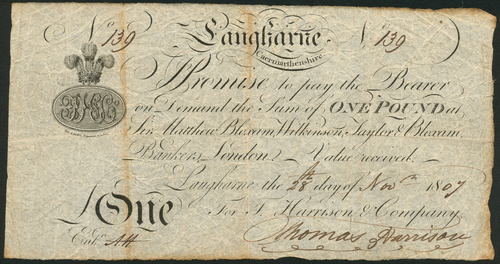 No 139 Langharne No 139
Caermarthenshire
I Promise to pay the Bearer
on Demand the Sum of ONE POUND at
Sir Matthew Bloxam, Wilkinson, Taylor & Bloxam,
Bankers, London, Value received.
Langharne the 28th day of Novr 1807
£ One For T. Harrison & Company
Entd AH Thomas Harrison